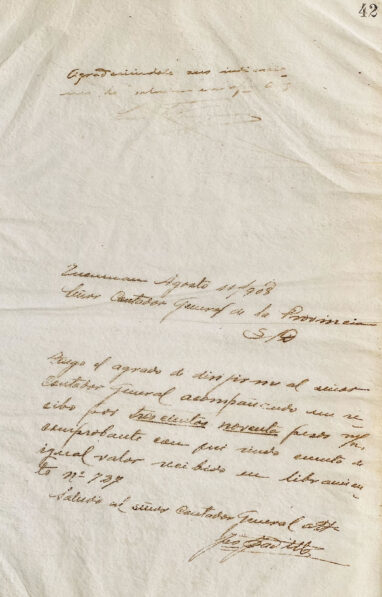 42
Agradeciendole sus indicacio
nes de
Tucuman Agosto 11/903
Señor Contador General de la Provincia
S/D
Tengo el agrado de dirijirme al señor
Contador General acompañando un re-
cibo por Trescientos noventa pesos m/n
comprobante con qui rindo cuenta de
igual valor recibido en libramien-
to Nº 737
Saludo al señor Contador General atte